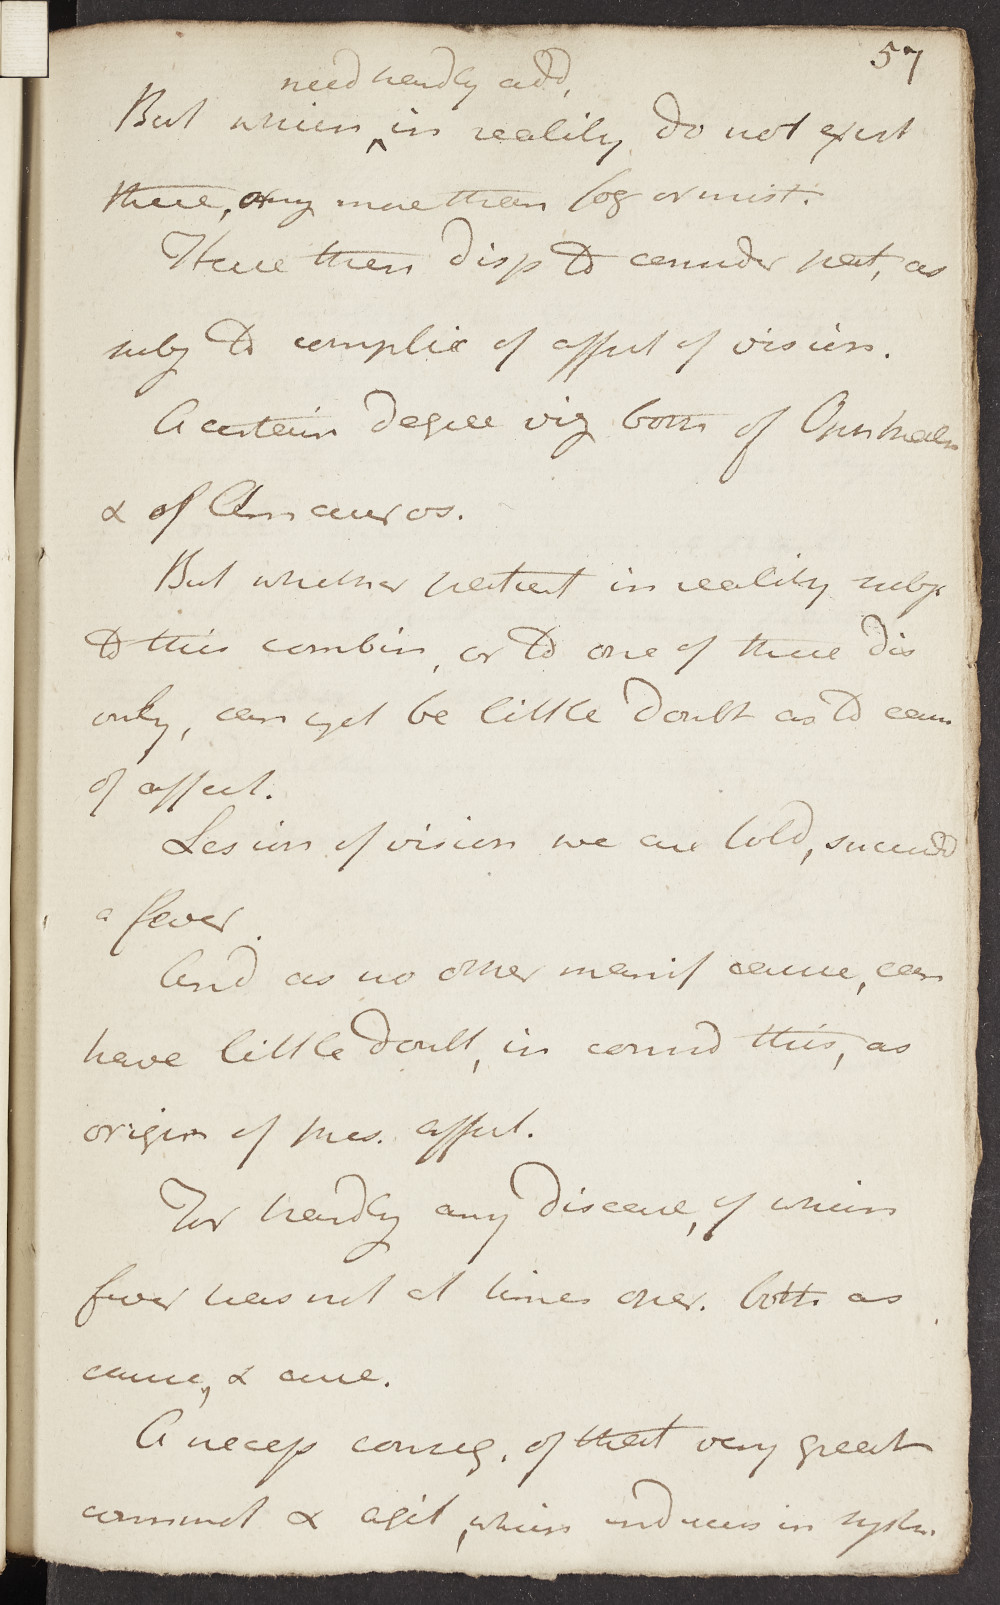 57
need hardly add,
But which ^ in reality do not exist
there, any more than fog or mist.
Have then disp to consider pat, as
subj to complic of affect of vision.
A certain degree viz both of Ophthalm
& of Amauros.
But whether patient in reality subj
to this combin, or to one of these dis
only, can yet be little doubt as to caus
of affect.
Lesion of vision we are told, succeedd
a fever.
And as no other manif cause, can
have little doubt, in consid this, as
origin of pres. affect.
For hardly any disease, of which
fever has not at times oper. both as
cause, & cure.
A necess conseq. of that very great
commot & agit, which induces in system.